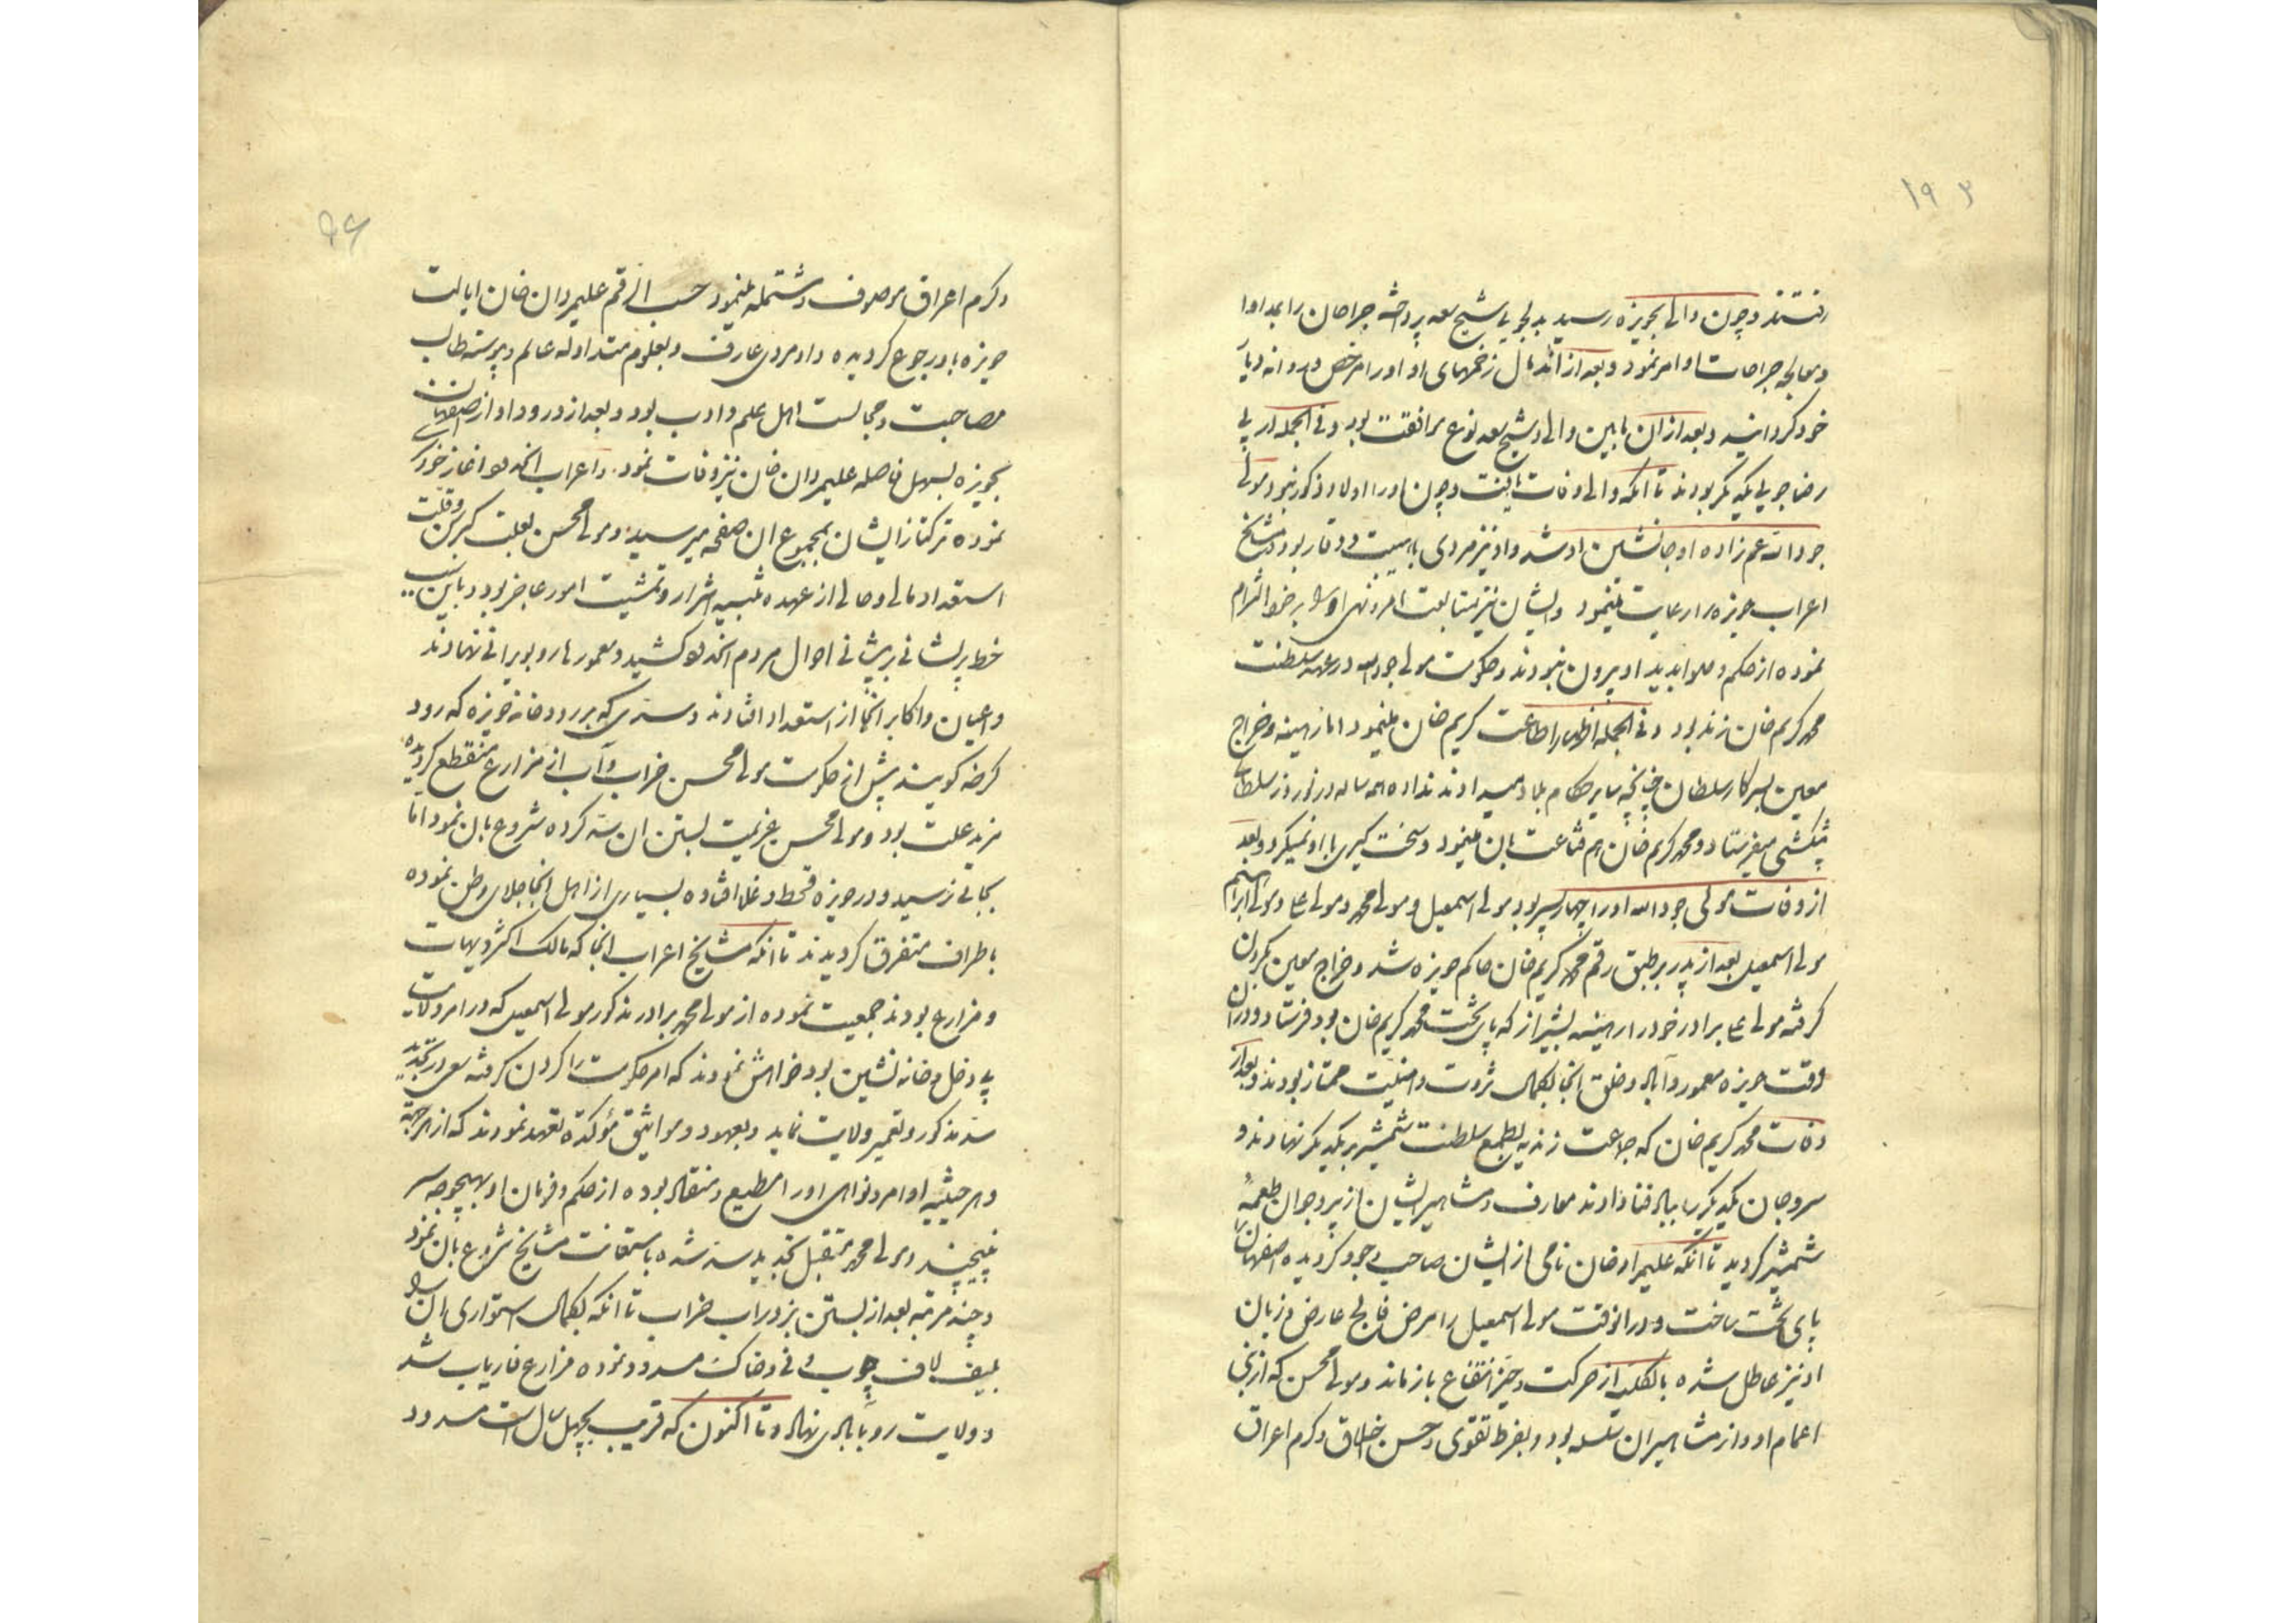 ۱۹۳
رفتند و چون والی بحویزه رسید بدلجویی شیخ سعد پرداخته جراحان را بمداوا
و معالجه جراحات او امر نمود و بعد از اندمال زخمهای او او را مرخص و روانه دیار
خود گردانید و بعد از ان مابین والی و شیخ سعد نوع مرافقت بود و فی الجمله در پی
رضاجویی یکدیگر بودند تا انکه والی وفات یافت و چون او را اولاد ذکور نبود مولی
جودالله عم زاده او جانشین او شد و او نیز مردی با هیبت و وقار بود و مشایخ
اعراب حویزه را رعایت مینمود و ایشان نیز متابعت امر و نهی او را بر خود التزام
نموده از حکم و صوابدید او بیرون نبودند و حکومت مولی جودالله در عهد سلطنت
محمد کریم خان زند بود و فی الجمله اظهار اطاعت کریم خان مینمود اما رهینه و خراج
معین بسرکار سلطان چنانچه سایر حکام بلاد میدادند نداده همه ساله در نوروز سلطانی
پیشکشی میفرستاد و محمد کریم خان هم قناعت بان مینمود و سخت گیری با او نمیکرد و بعد
از وفات مولی جودالله او را چهار پسر بود مولی اسمعیل و مولی محمد و مولی علی و مولی ابراهیم
مولی اسمعیل بعد از پدر بر طبق رقم محمد کریم خان حاکم حویزه شد و خراج معین بگردن
گرفته مولی علی برادر خود را رهینه بشیراز که پای تخت محمد کریم خان بود فرستاد و در ان
وقت حویزه معمور و آباد و خلق انجا بکمال ثروت و امنیت ممتاز بودند و بعد از
وفات محمد کریم خان که جماعت زندیه بطمع سلطنت شمشیر بر یکدیگر نهادند و
سر و جان یکدیگر را بباد فنا دادند معارف و مشاهیر ایشان از پیر و جوان طعمه
شمشیر گردید تا انکه علیمراد خان نامی از ایشان صاحب وجود گردیده اصفهان را
پای تخت ساخت و در انوقت مولی اسمعیل را مرض فالج عارض و زبان
او نیز عاطل شده بالکلیه از حرکت و حیز انتفاع باز ماند و مولی محسن که از بنی
اعمام او و از مشاهیر ان سلسله بود و بفرط تقوی و حسن اخلاق و کرم اعراق
۹۶
و کرم اعراق موصوف و مشتمله مینمود حسب الرقم علیمردان خان ایالت
حویزه باو رجوع گردیده و او مردی عارف و بعلوم متداوله عالم و پیوسته طالب
مصاحبت و مجالست اهل علم و ادب بود و بعد از ورود او از اصفهان
بحویزه بسهل فاصله علیمردان خان نیز وفات نمود و اعراب انحدود اغاز خودسری
نموده ترکتاز ایشان بمجموع ان صفحه میرسید و مولی محسن بعلت کبر سن و قلت
استعداد مالی و حالی از عهده تنبیه اشرار و تمشیت امور عاجز بود و باین سبب
خط پریشانی بر پیشانی احوال مردم انحدود کشید و معمورها رو بویرانی نهادند
و اعیان و اکابر انجا از استعداد افتادند و سدی که بر رودخانه حویزه که رود
کرخه گویند پیش از حکومت مولی محسن خراب و آب از مزارع منقطع گردیده
مزید علت بود و مولی محسن عزیمت بستن ان سد کرده شروع بان نمود اما
بجائی نرسید و در حویزه قحط و غلا افتاده بسیاری از اهل انجا جلای وطن نموده
باطراف متفرق گردیدند تا انکه مشایخ اعراب انجا که مالک اکثر دیهات
و مزارع بودند جمعیت نموده از مولی محمد برادر مذکور مولی اسمعیل که در امر ولایت
بی دخل و خانه نشین بود خواهش نمودند که امر حکومت را گردن گرفته سعی در تجدید
سد مذکور و تعمیر ولایت نماید و بعهود و مواثیق مؤکده تعهد نمودند که از هر جهة
و هر حیثیه اوامر و نواهی او را مطیع و منقاد بوده از حکم و فرمان او بهیچوجه سر
نپیچیند و مولی محمد متقبل تجدید سد شده باستعانت مشایخ شروع بان نمود
و چند مرتبه بعد از بستن بزور اب خراب تا انکه بکمال استواری ان را
بلیف لاف چوب و نی و خاک مسدود نموده مزارع فاریاب شد
و ولایت رو بابادی نهاد و تا اکنون که قریب بچهل سال است مسدود